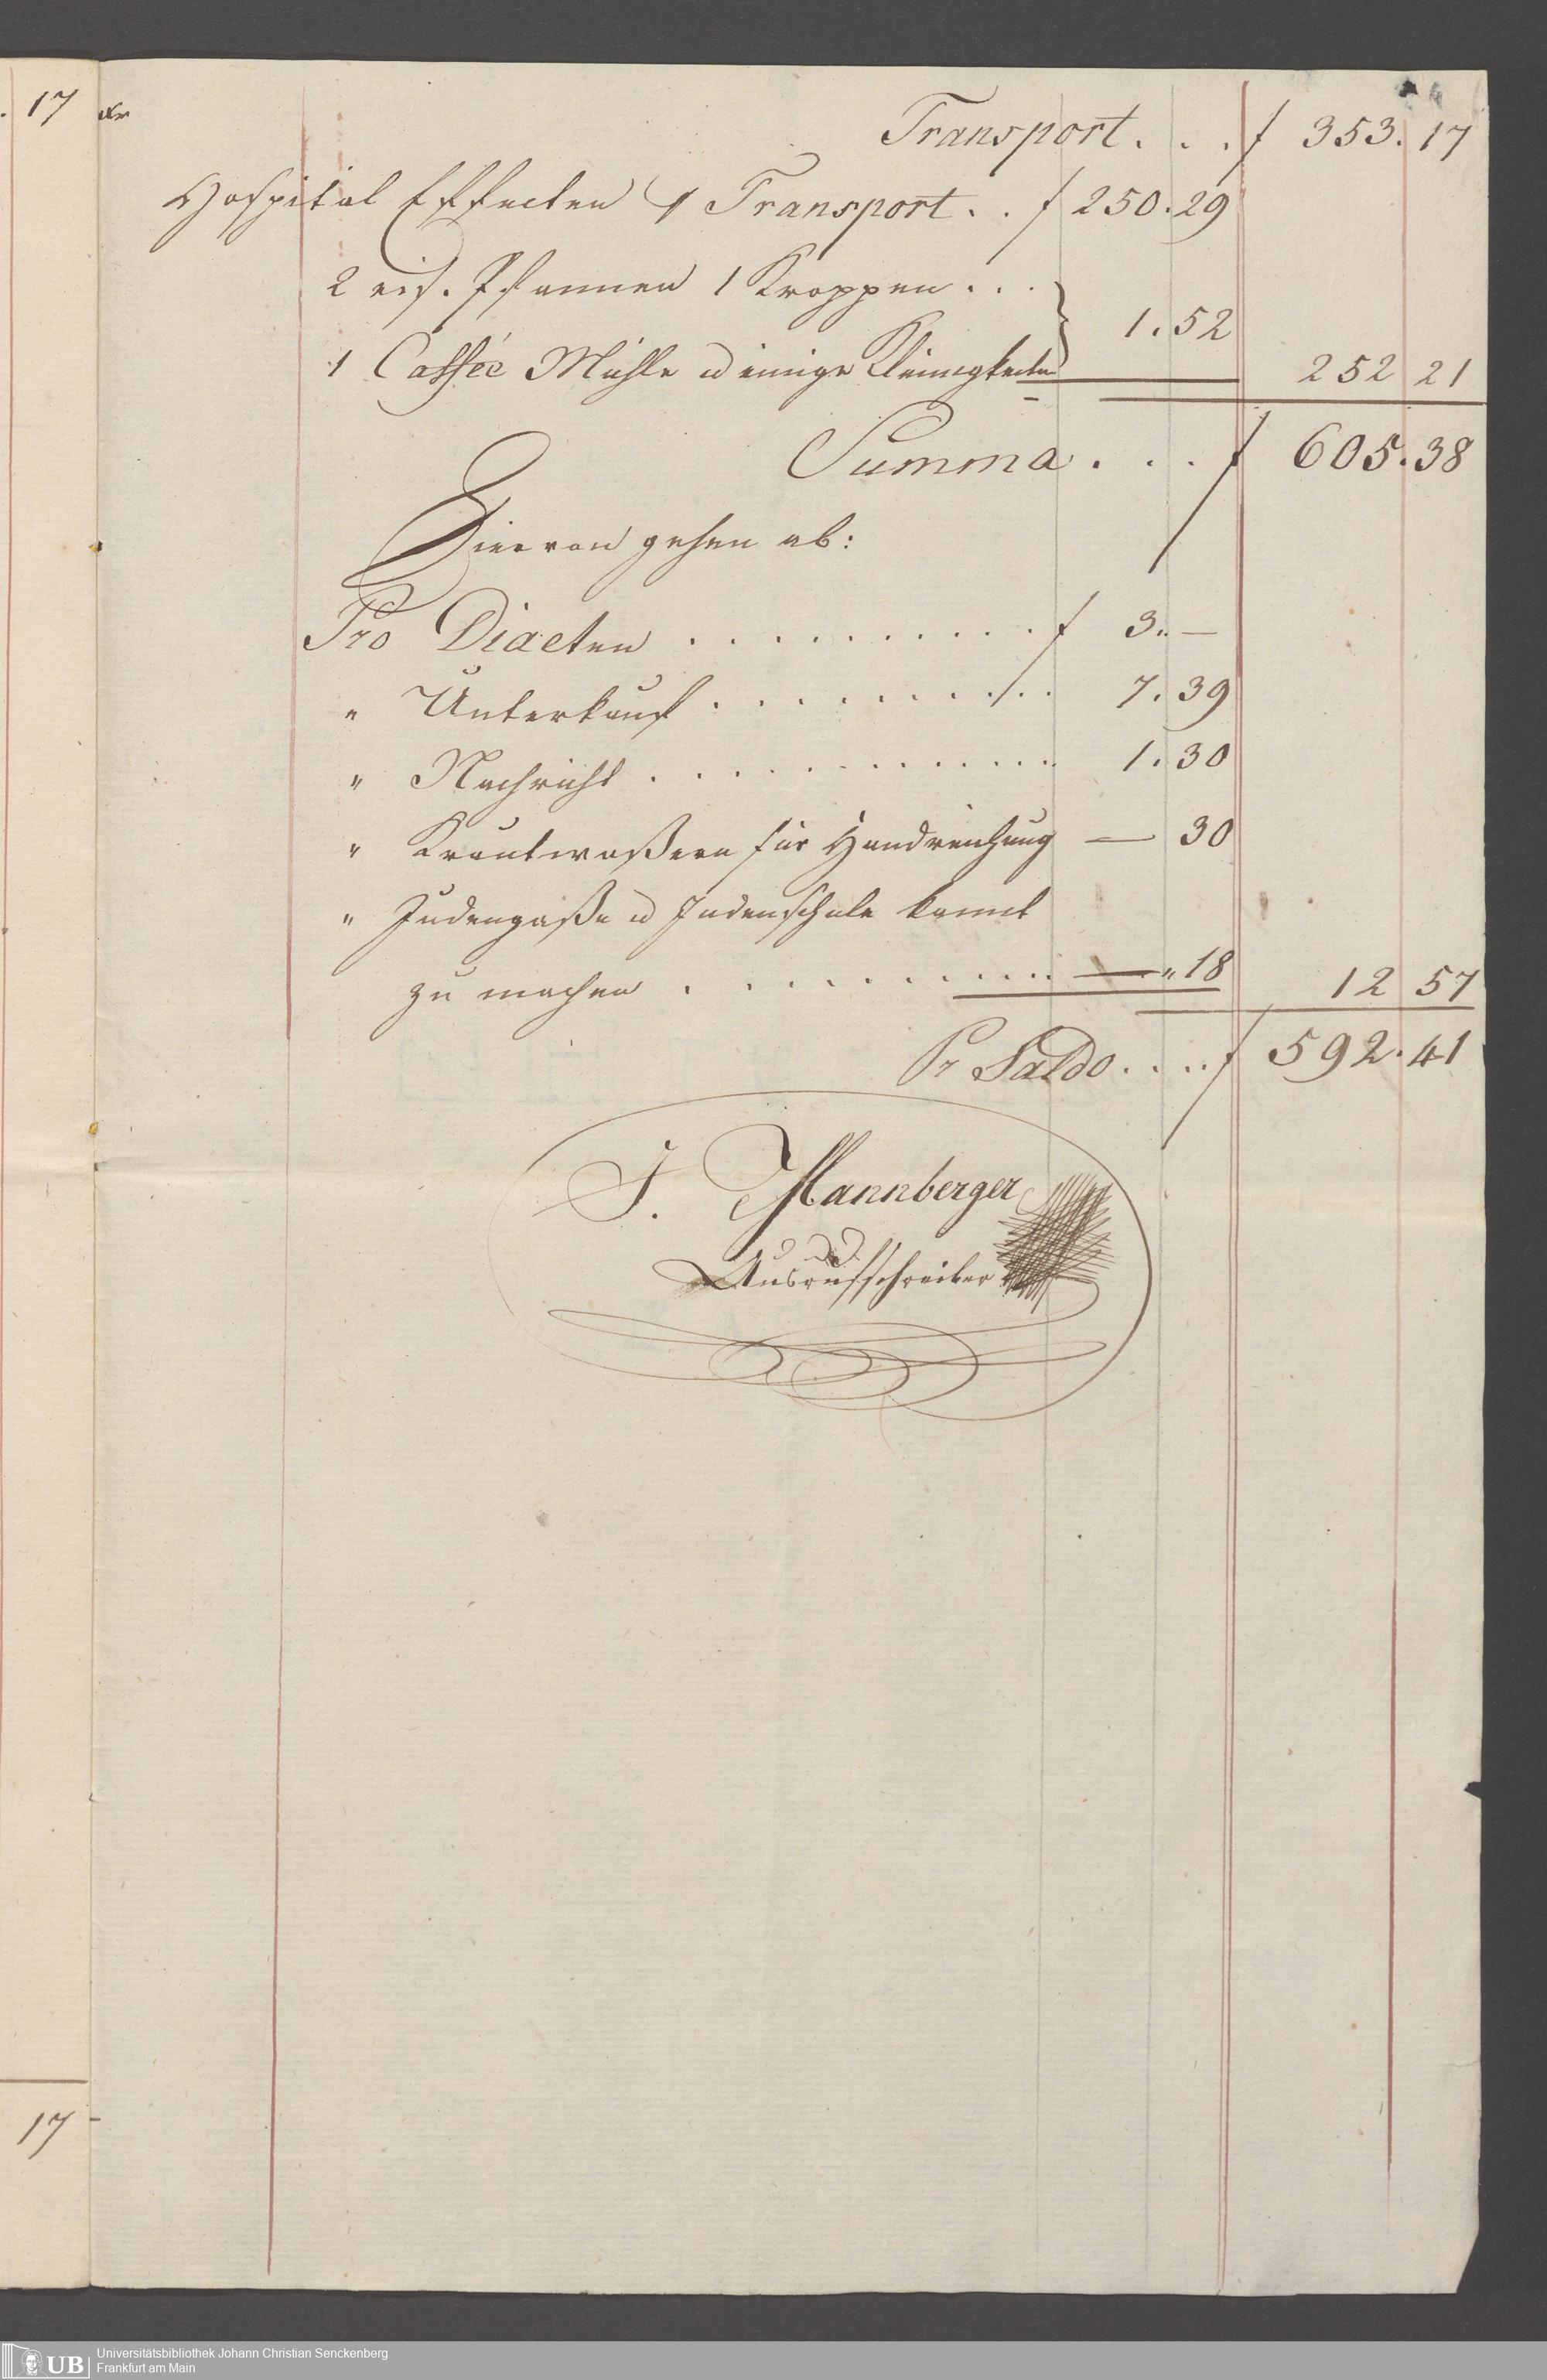 17 xr
Transport . . . f 353. 17
Hospital Effecten Transport . . f 250. 29
2 eis. Pfannen 1 Kroppen . . .
1. 52
1 Caffée Mühle u einige Kleinigkeiten
252 21
Summa . . . f 605. 38
Hiervon gehen ab:
Pro Diaeten . . . . . . . . . f 3. —
" Unterkauf . . . . . . . . . 7. 39
" Nachricht . . . . . . . . . . 1. 30
" für Handreichung — 30
" Judengaße u Judenschule kannt
zu machen . . . . . . . . . — " 18
12 57
Pr Saldo . . . . f 592. 41
J. Mannberger
Ausrufschreiber
17
UB Universitätsbibliothek Johann Christian Senckenberg
Frankfurt am Main